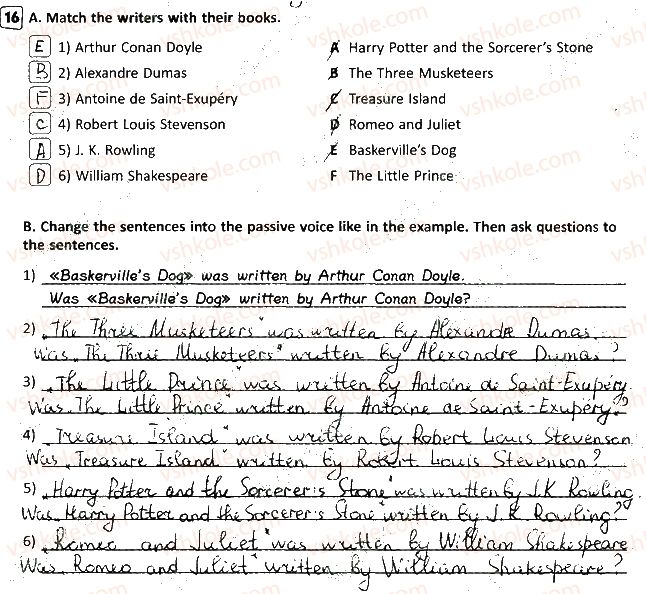 16 A. Match the writers with their books.
E 1) Arthur Conan Doyle A Harry Potter and the Sorcerer's Stone
B 2) Alexandre Dumas B The Three Musketeers
F 3) Antoine de Saint-Exupéry C Treasure Island
C 4) Robert Louis Stevenson D Romeo and Juliet
A 5) J. K. Rowling E Baskerville's Dog
D 6) William Shakespeare F The Little Prince
B. Change the sentences into the passive voice like in the example. Then ask questions to
the sentences.
1) «Baskerville's Dog» was written by Arthur Conan Doyle.
Was «Baskerville's Dog» written by Arthur Conan Doyle?
2) „The Three Musketeers" was written by Alexandre Dumas.
Was „The Three Musketeers" written by Alexandre Dumas?
3) „The Little Prince" was written by Antoine de Saint-Exupéry.
Was „The Little Prince" written by Antoine de Saint-Exupéry?
4) „Treasure Island" was written by Robert Louis Stevenson
Was „Treasure Island" written by Robert Louis Stevenson?
5) „Harry Potter and the Sorcerer's Stone" was written by J.K Rowling.
Was „Harry Potter and the Sorcerer's Stone" written by J.K Rowling?
6) „Romeo and Juliet" was written by William Shakespeare
Was „Romeo and Juliet" written by William Shakespeare?
vshkole.com